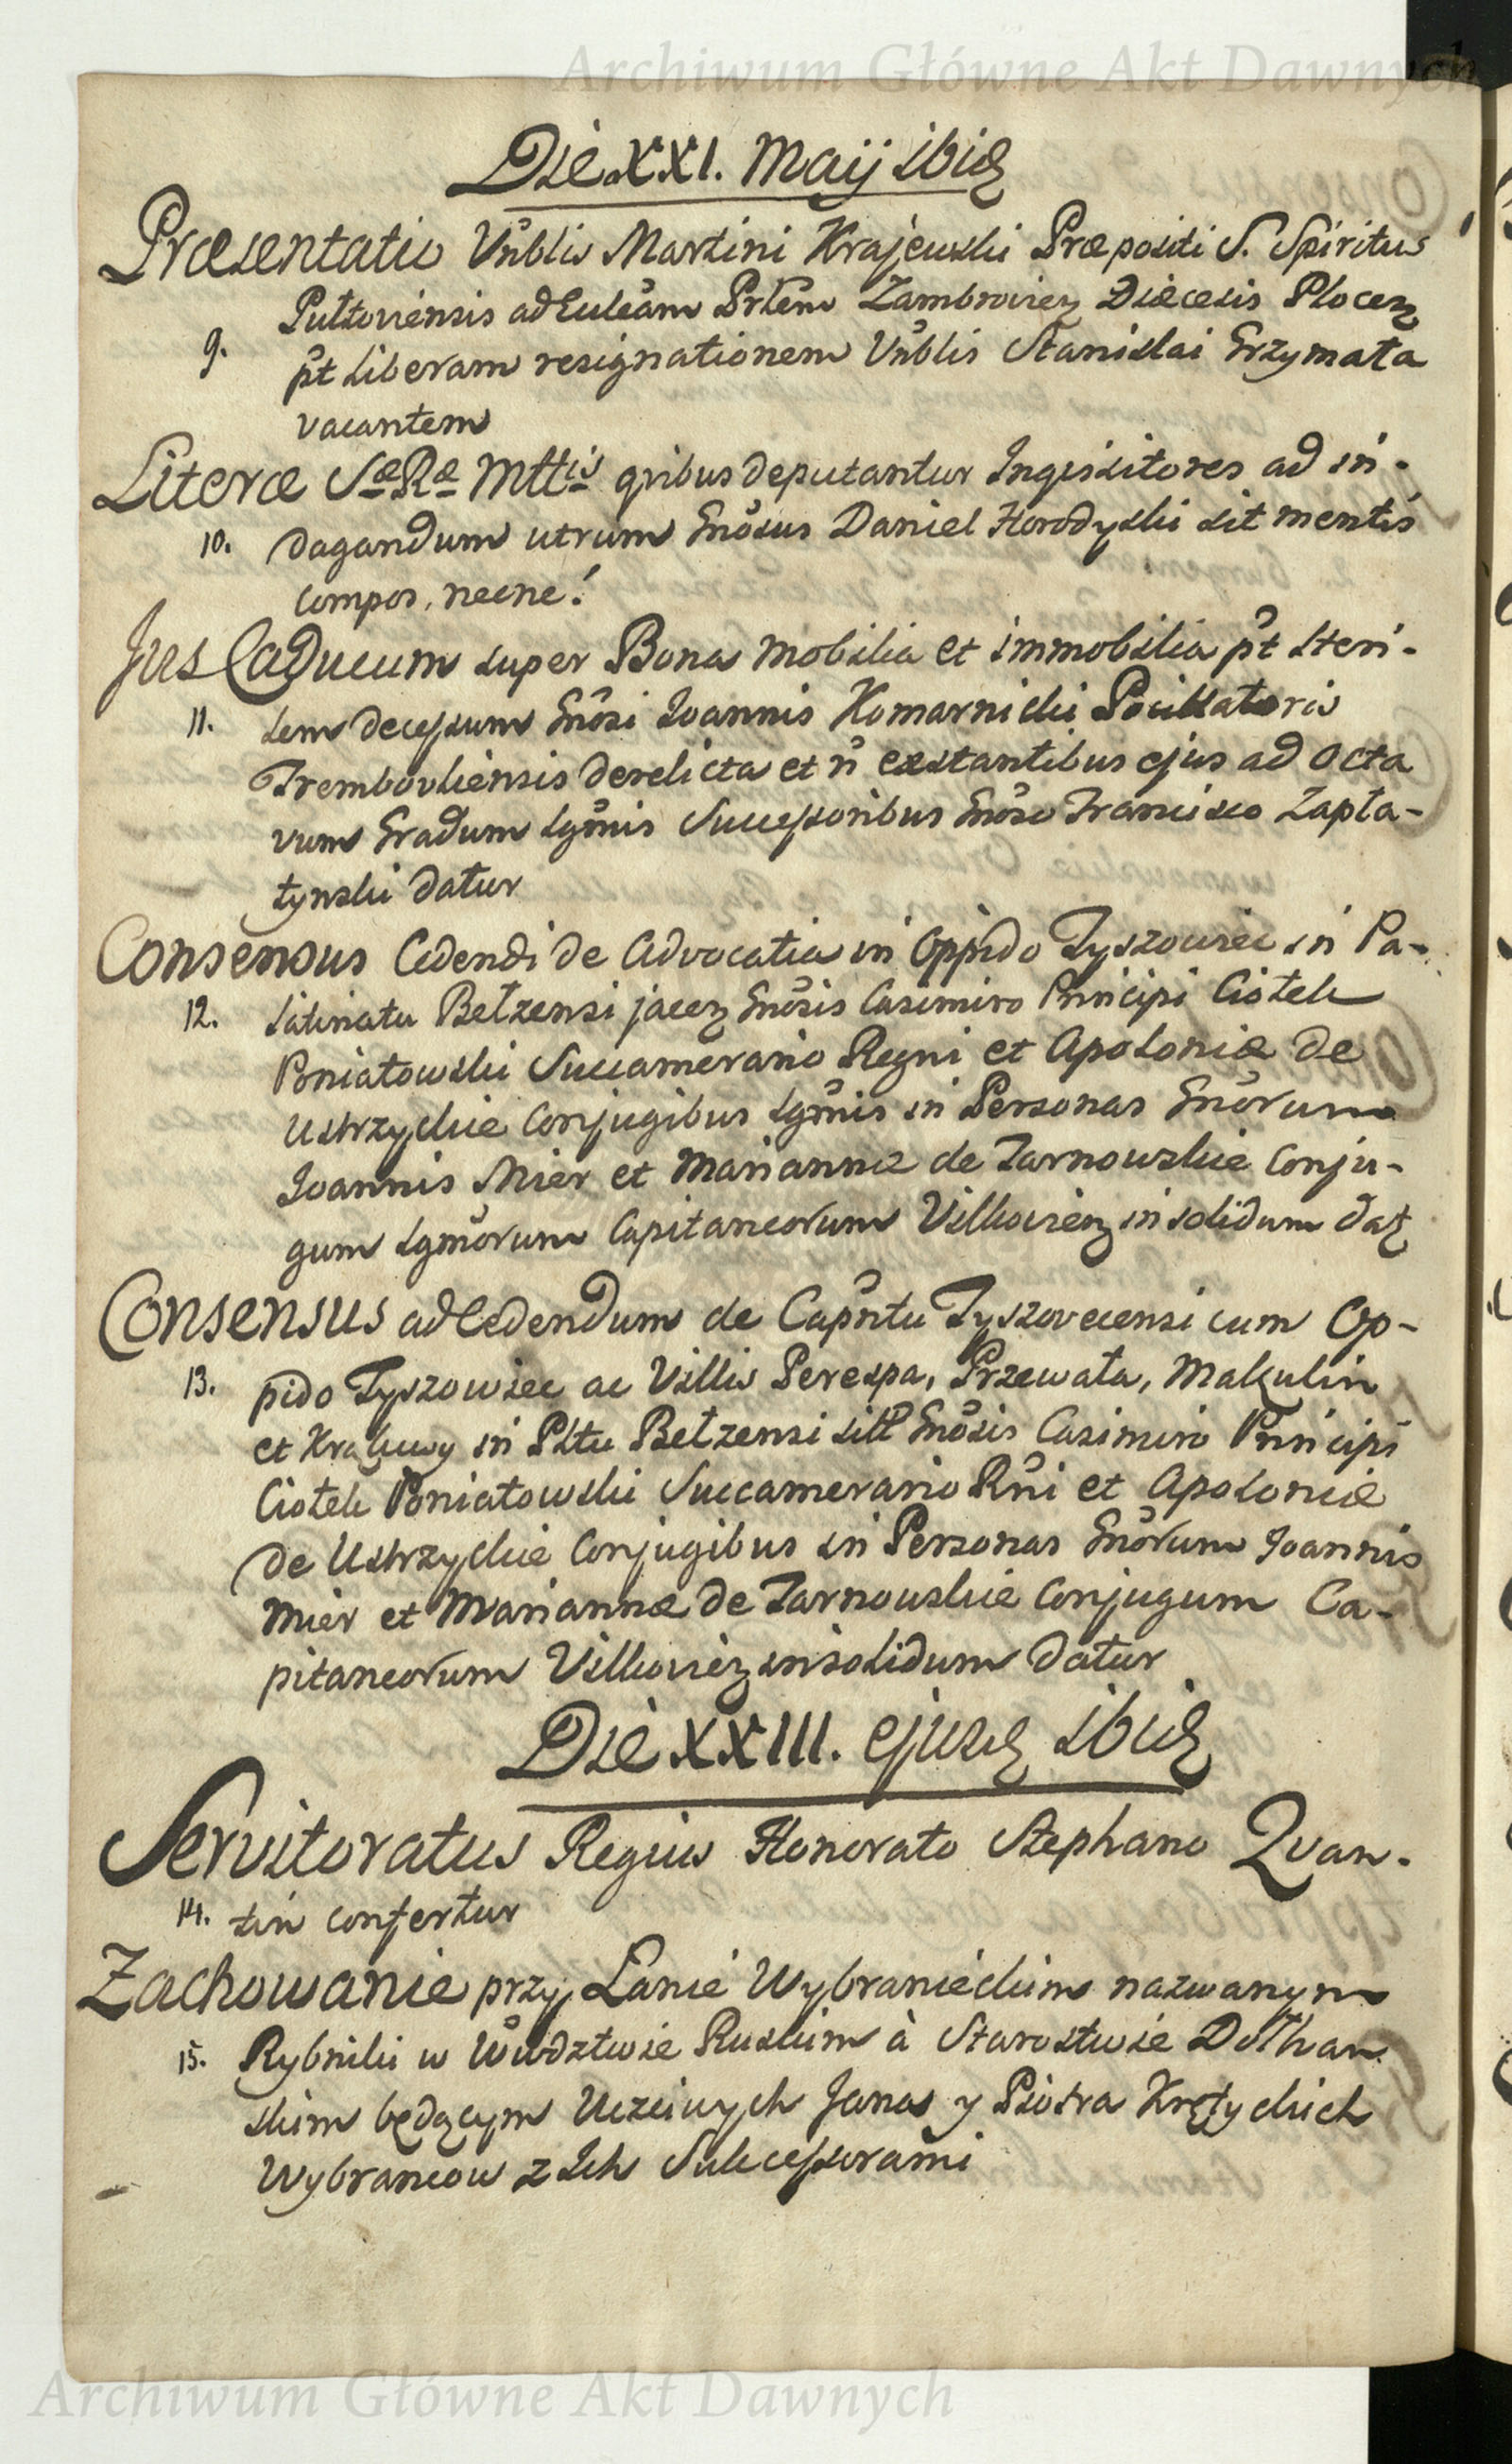 Archiwum Główne Akt Dawnych
Die XXI. Maij ibid
Præsentatio Vnblis Martini Krajewski Præpositi S. Spiritus
Pultoviensis ad Eccleam Prlem Zambrovien Diæcesis Plocen
9. pt liberam resignationem Vnblis Stanislai Grzymała
vacantem
Literæ Sæ Ræ Mttis qvibus deputantur Inqvisitores ad in-
10. dagandum utrum Gnosus Daniel Horodyski sit mentis
compos, necne!
Jus Caducum super Bona mobilia et immobilia pt steri-
11. lem decessum Gnosi Ioannis Komarnicki Pocillatoris
Trembovliensis derelicta et n exstantibus ejus ad octa
vum Gradum lgmis Successoribus Gnoso Francisco Zapła-
tynski datur
Consensus Cedendi de Advocatia in Oppido Tyszowiec in Pa-
12. latinatu Bełzensi jacen Gnosis Casimiro Principi Ciołek
Poniatowski Succamerario Regni et Apoloniæ de
Ustrzyckie Conjugibus lgmis in Personas Gnorum
Ioannis Mier et Mariannæ de Tarnowskie Conju-
gum lgmorum Capitaneorum Vilkovien in solidum dat
Consensus ad Cedendum de Capntu Tyszovecensi cum Op-
13. pido Tyszowiec ac Villis Perespa, Przewała, Makulin
et Kraluwy in Pltu Bełzensi sitt Gnosis Casimiro Principi
Ciołek Poniatowski Succamerario Rni et Apoloniæ
de Ustrzyckie Conjugibus in Personas Gnorum Joannis
Mier et Mariannæ de Tarnowskie Conjugum Ca-
pitaneorum Vilkovien in solidum datur
Die XXIII. ejusd ibid
Servitoratus Regius Honorato Stephano Qvan-
14. tin confertur
Zachowanie przy Łanie Wybranieckim nazwanym
15. Rybniki w Wwdztwie Ruskim à Starostwie Dolhan
skim będącym Uczciwych Jana y Piotra Krętyckich
Wybrancow z Ich Sukcessorami
Archiwum Główne Akt Dawnych